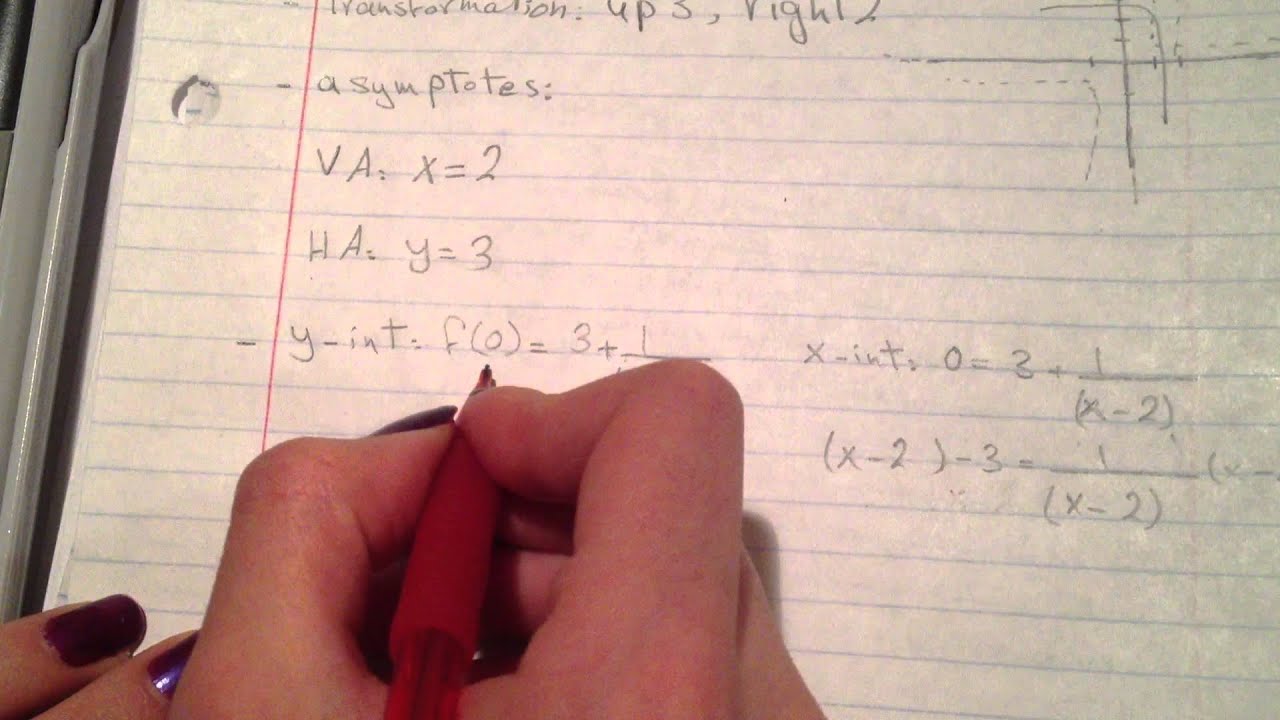 - Transformation: up 3, right 2
- asymptotes:
VA: x = 2
HA: y = 3
- y-int: f(0) = 3 + 1
x-int: 0 = 3 + 1/(x-2)
(x-2) -3 = 1/(x-2) (x-